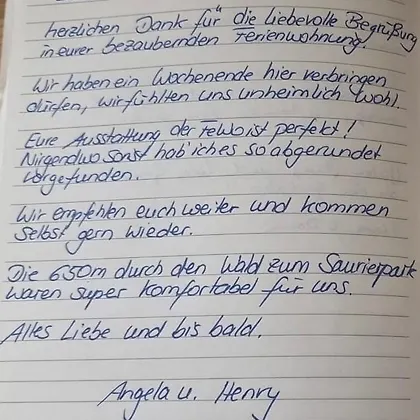 herzlichen Dank für die liebevolle Begrüßung
in eurer bezaubernden Ferienwohnung!
Wir haben ein Wochenende hier verbringen
dürfen, wir fühlten uns unheimlich wohl.
Eure Ausstattung der FeWo ist perfekt!
Nirgendwo sonst hab' ich es so abgerundet
vorgefunden.
Wir empfehlen euch weiter und kommen
selbst gern wieder.
Die 650m durch den Wald zum Saurierpark
waren super komfortabel für uns.
Alles Liebe und bis bald.
Angela u. Henry